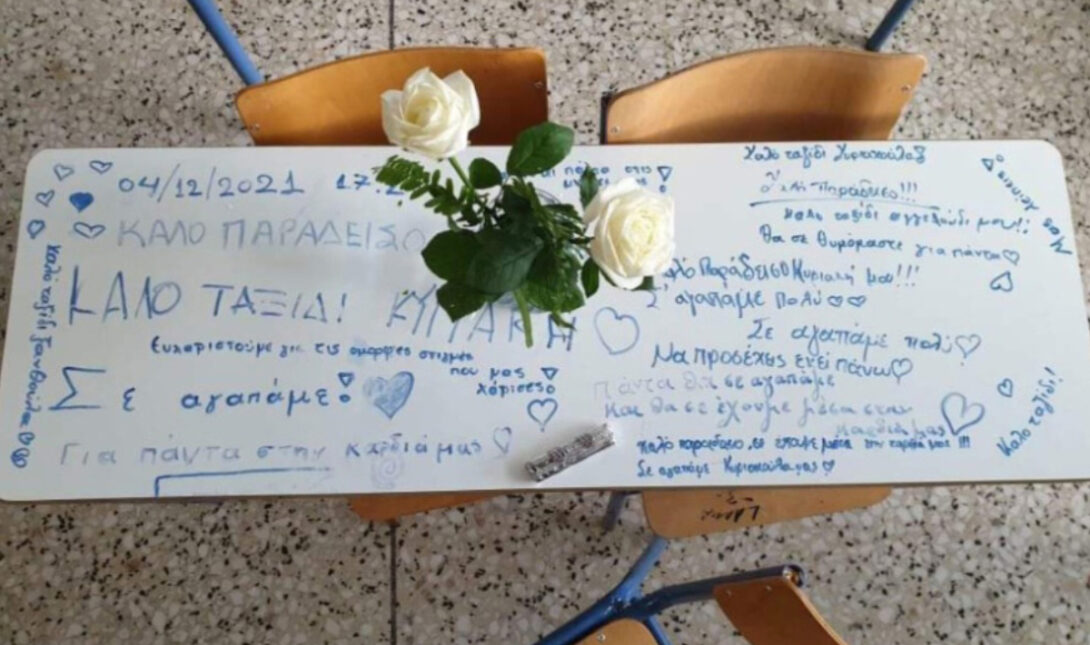 04/12/2021 17.
ΚΑΛΟ ΠΑΡΑΔΕΙΣΟ
ΚΑΛΟ ΤΑΞΙΔΙ ΚΥΡΙΑΚΗ
Ευχαριστούμε για τις όμορφες στιγμές
που μας
χάρισες
Σε αγαπάμε!
Για πάντα στην καρδιά μας
Καλό ταξίδι Ξανθούλα
Καλό ταξίδι Κυριακούλα
Παράδεισο!!!
Καλό ταξίδι αγγελούδι μου!!
θα σε θυμόμαστε για πάντα
Καλό Παράδεισο Κυριακή μου!!!
Σ' αγαπάμε πολύ
Σε αγαπάμε πολύ
Να προσέχεις εκεί πάνω
Πάντα θα σε αγαπάμε
και θα σε έχουμε μέσα στην
καρδιά μας
Καλό παράδεισο
μέσα την καρδιά μας !!!
Σε αγαπάμε Κυριακούλα μας
Μας λείπεις
Καλό ταξίδι!